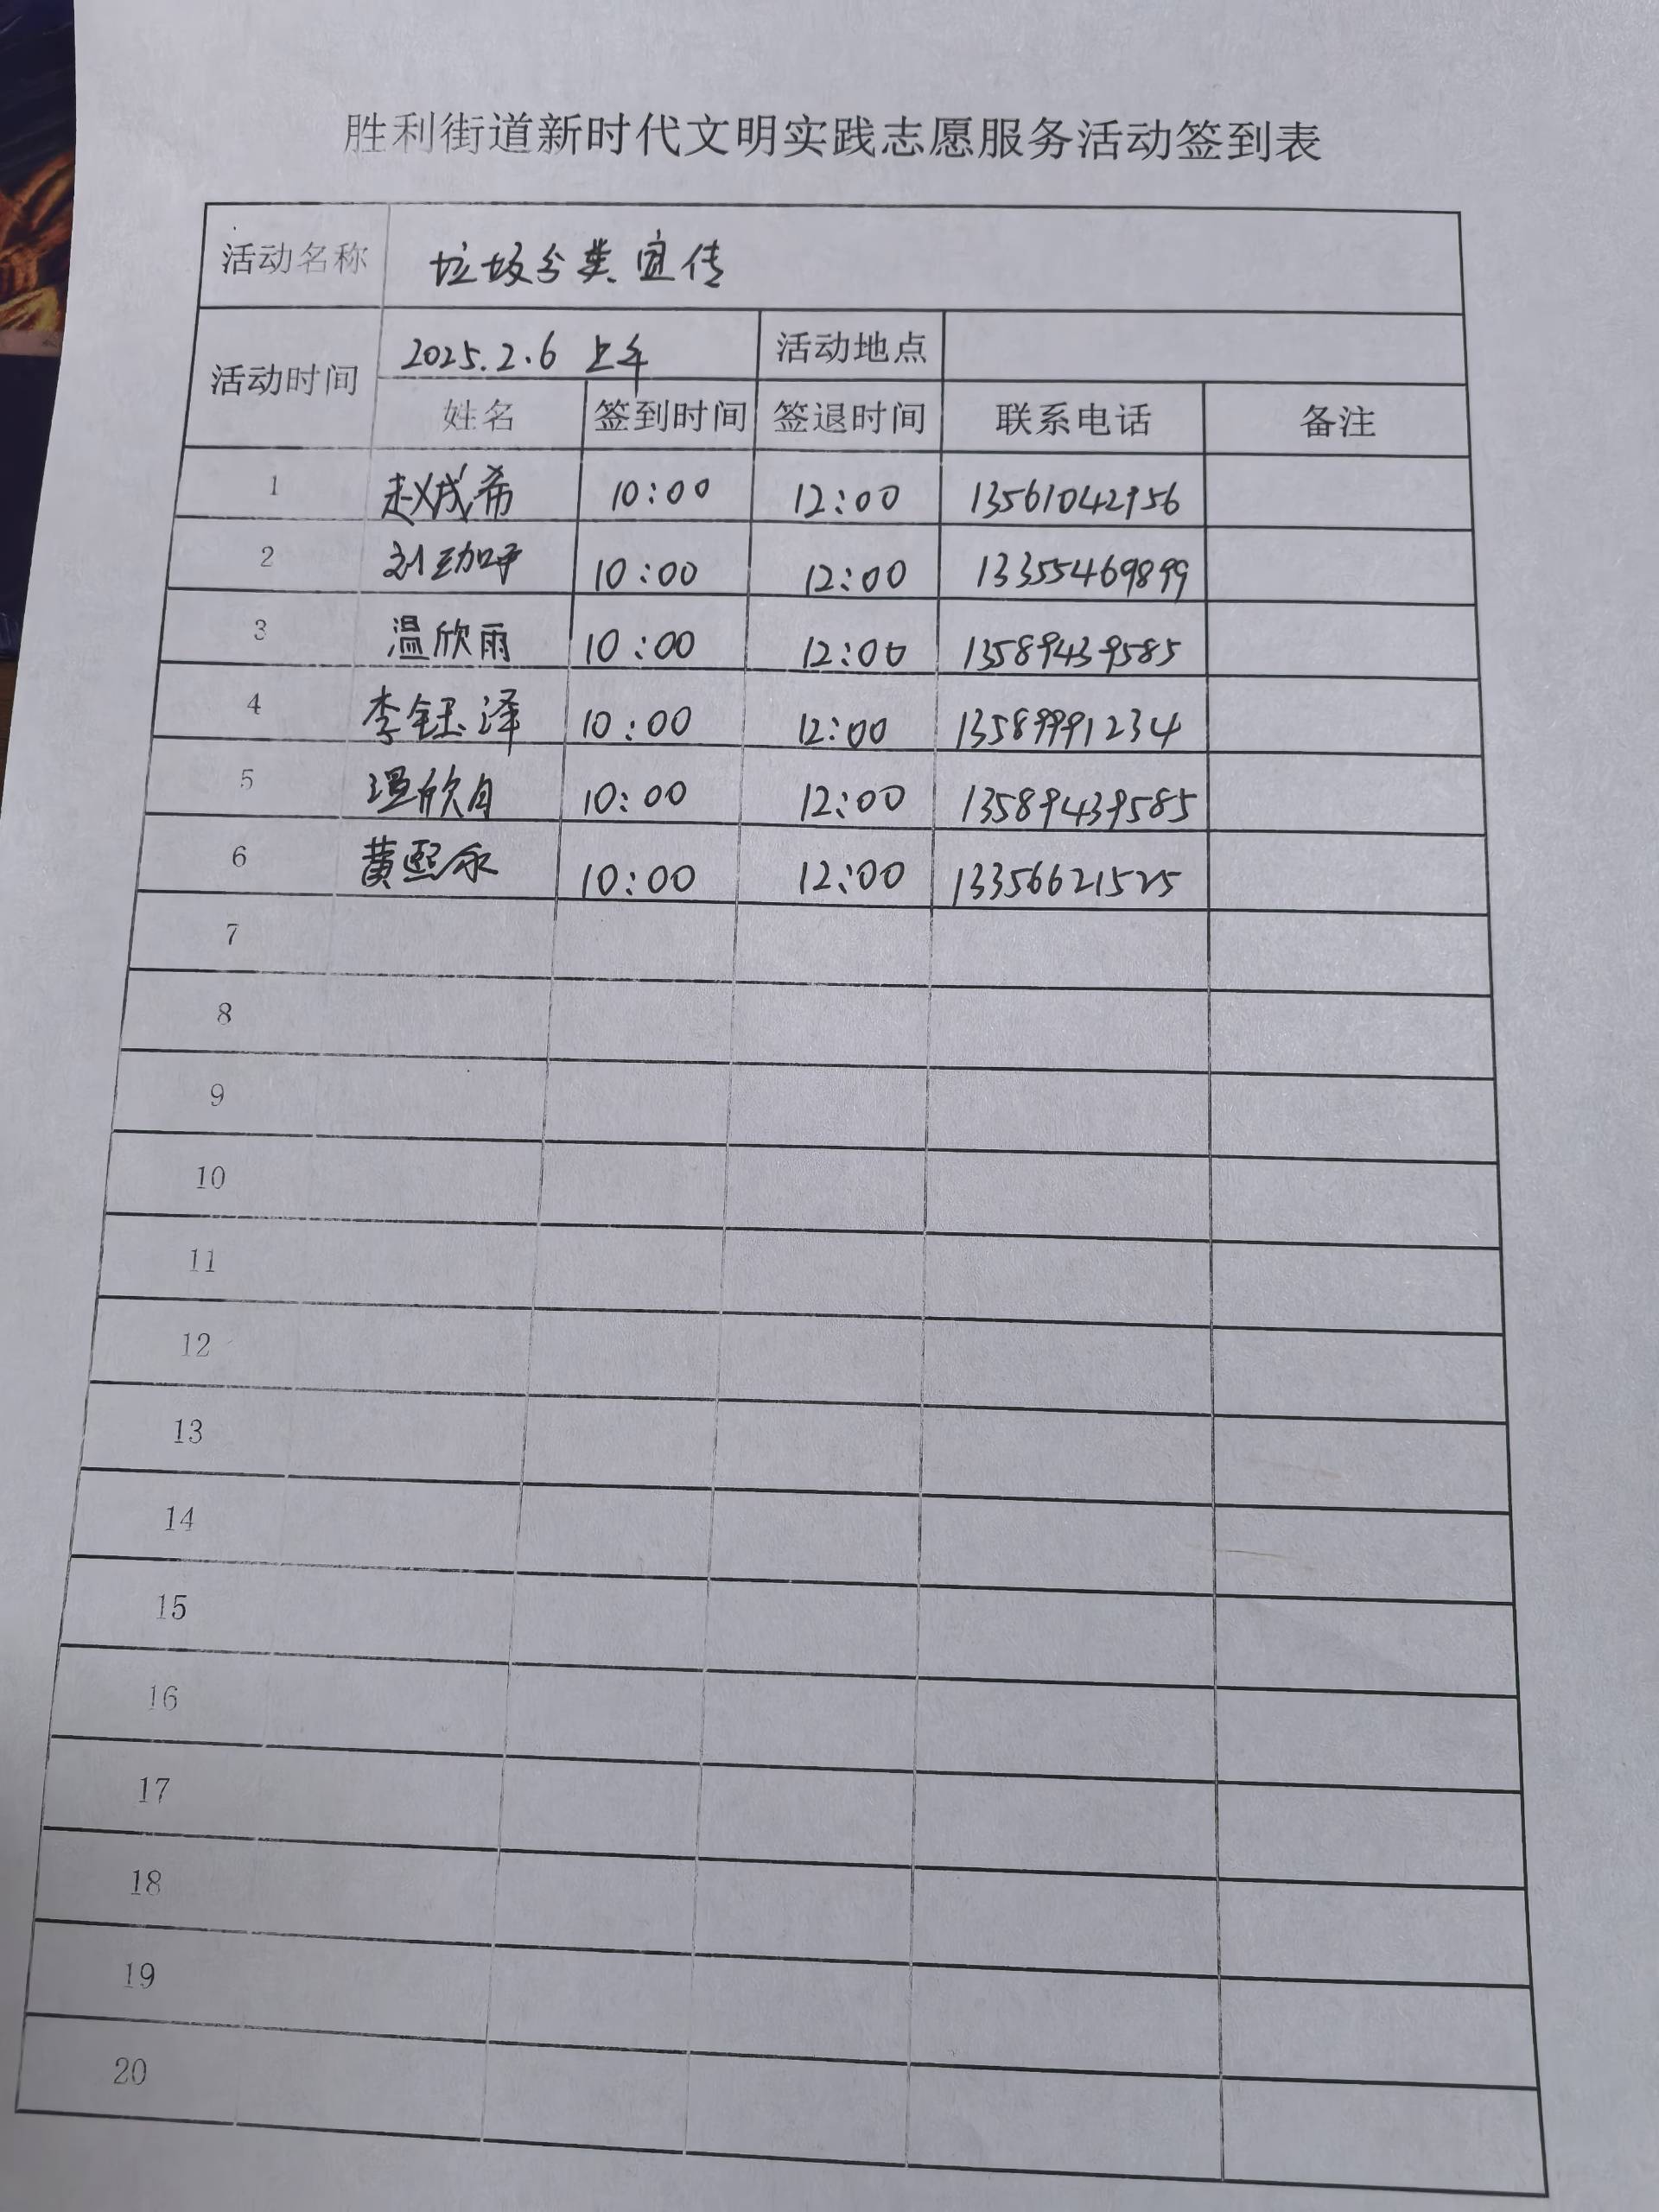 胜利街道新时代文明实践志愿服务活动签到表
活动名称 垃圾分类宣传
活动时间 2025.2.6 上午 活动地点
姓名 签到时间 签退时间 联系电话 备注
1 赵成希 10:00 12:00 13561042956
2 10:00 12:00 13355469899
3 温欣雨 10:00 12:00 13589439585
4 李钰泽 10:00 12:00 13589991234
5 温欣月 10:00 12:00 13589439585
6 黄熙永 10:00 12:00 13356621525
7
8
9
10
11
12
13
14
15
16
17
18
19
20